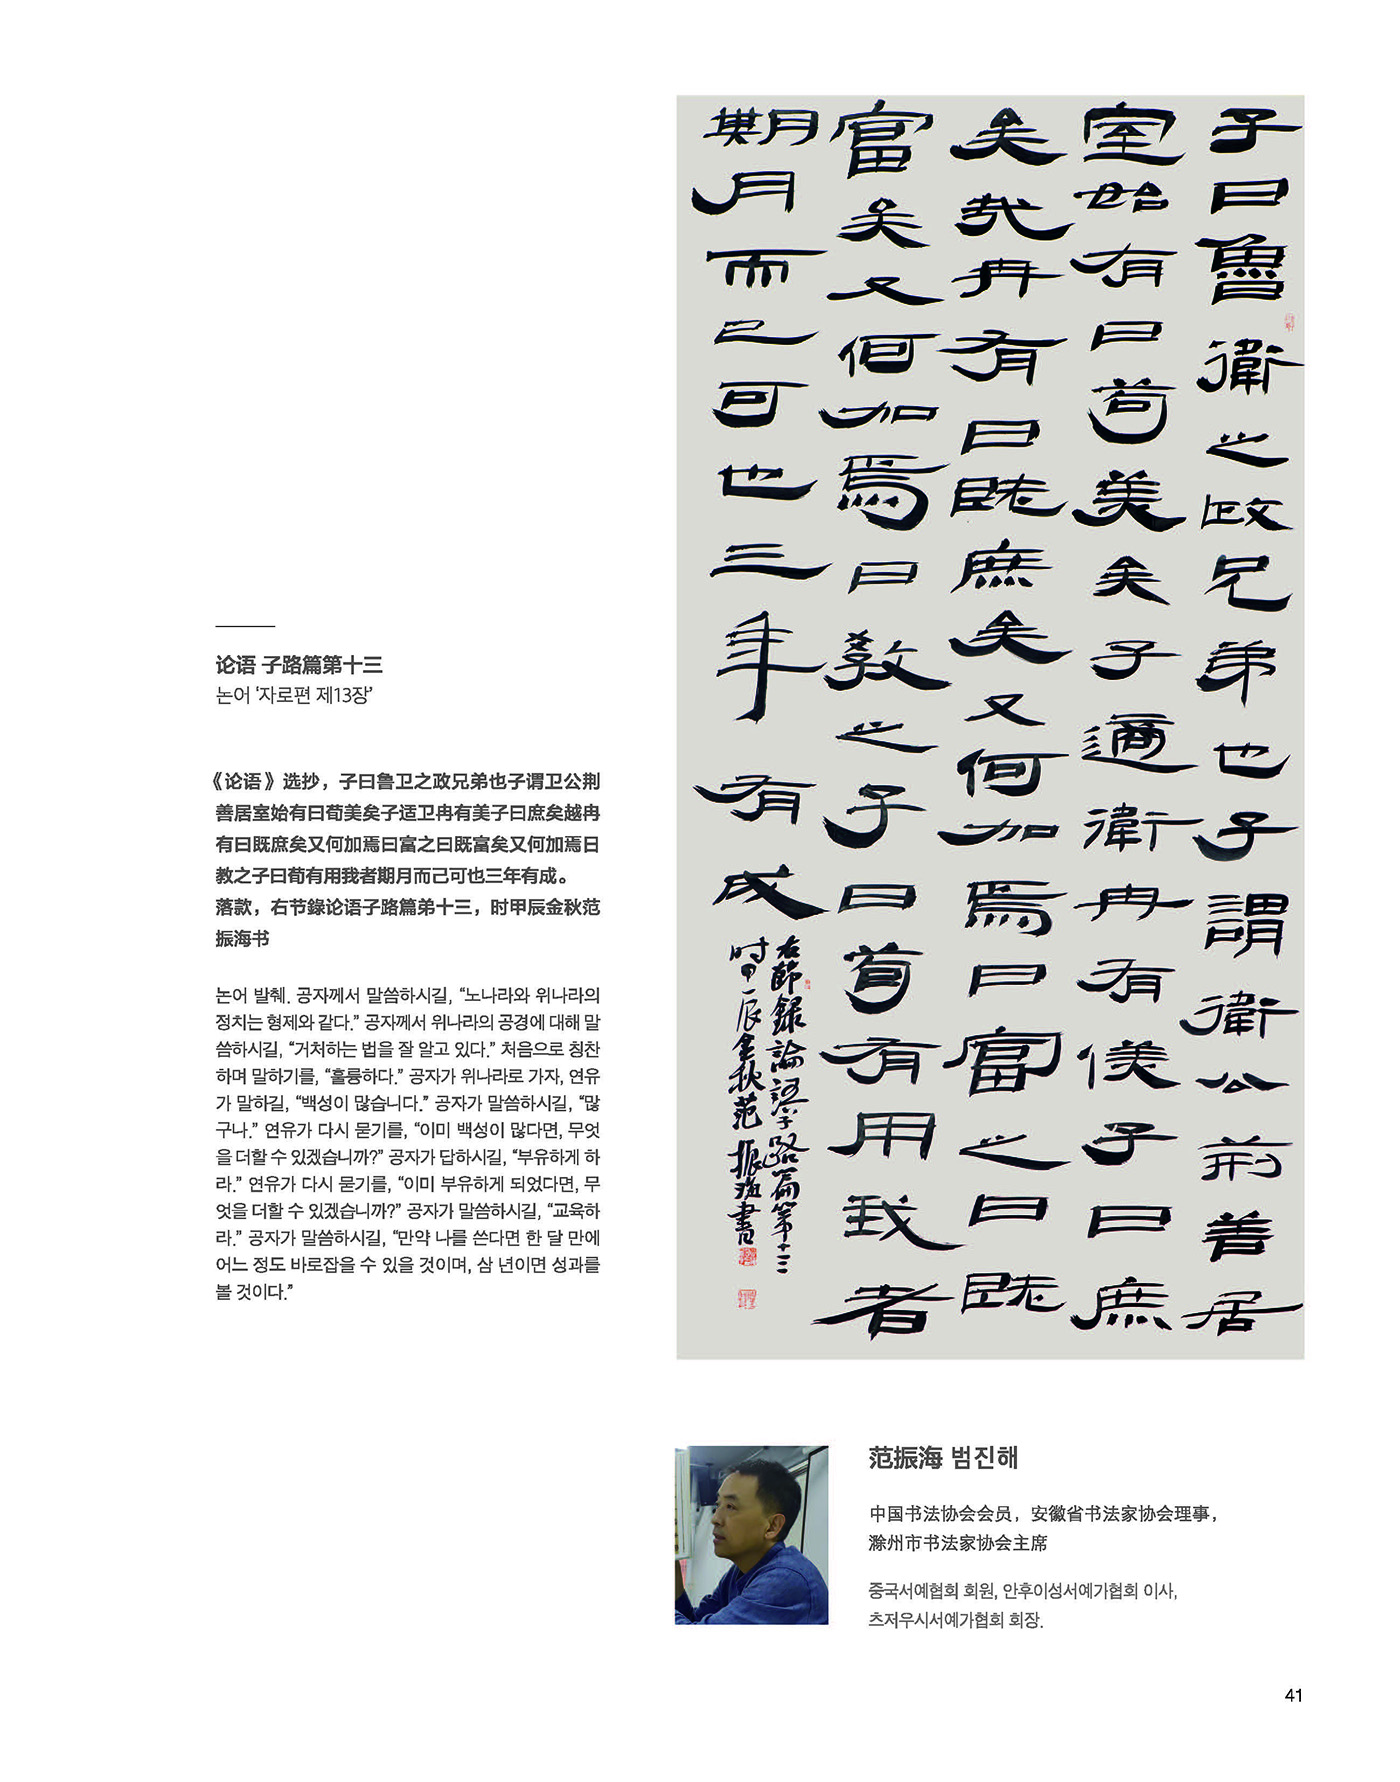 论语 子路篇第十三
논어 ‘자로편 제13장’
《论语》选抄，子曰鲁卫之政兄弟也子谓卫公荆
善居室始有曰荀美矣子适卫冉有美子曰庶矣越冉
有曰既庶矣又何加焉曰富之曰既富矣又何加焉日
教之子曰荀有用我者期月而己可也三年有成。
落款，右节錄论语子路篇弟十三，时甲辰金秋范
振海书
논어 발췌. 공자께서 말씀하시길, “노나라와 위나라의
정치는 형제와 같다.” 공자께서 위나라의 공경에 대해 말
씀하시길, “거처하는 법을 잘 알고 있다.” 처음으로 칭찬
하며 말하기를, “훌륭하다.” 공자가 위나라로 가자, 연유
가 말하길, “백성이 많습니다.” 공자가 말씀하시길, “많
구나.” 연유가 다시 묻기를, “이미 백성이 많다면, 무엇
을 더할 수 있겠습니까?” 공자가 답하시길, “부유하게 하
라.” 연유가 다시 묻기를, “이미 부유하게 되었다면, 무
엇을 더할 수 있겠습니까?” 공자가 말씀하시길, “교육하
라.” 공자가 말씀하시길, “만약 나를 쓴다면 한 달 만에
어느 정도 바로잡을 수 있을 것이며, 삼 년이면 성과를
볼 것이다.”
子曰魯衛之政兄弟也子謂衛公荊善居
室始有曰苟美矣子適衛冉有僕子曰庶
矣哉冉有曰既庶矣又何加焉曰富之曰既
富矣又何加焉曰教之子曰苟有用我者
期月而已可也三年有成
右節録論語子路篇第十三
时甲辰金秋范振海書
范振海 범진해
中国书法协会会员，安徽省书法家协会理事，
滁州市书法家协会主席
중국서예협회 회원, 안후이성서예가협회 이사,
츠저우시서예가협회 회장.
41